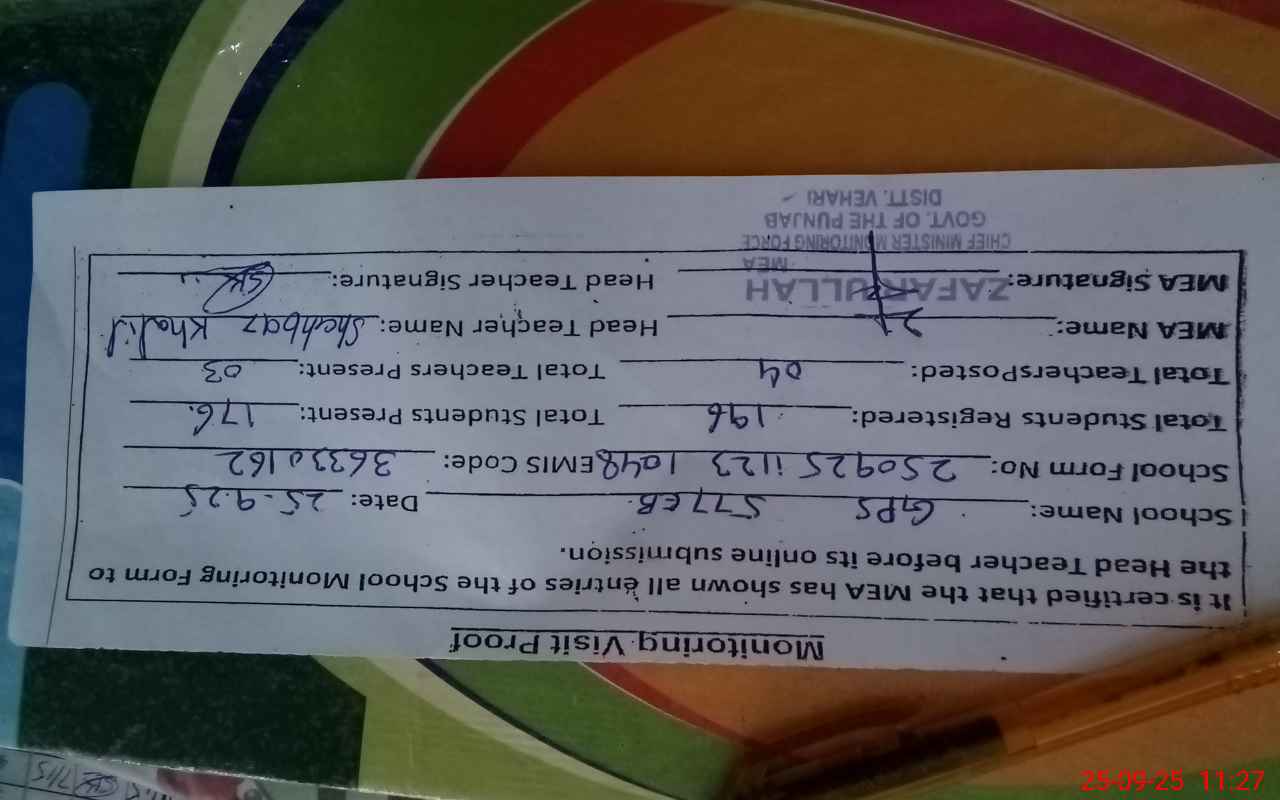 Monitoring Visit Proof
It is certified that the MEA has shown all entries of the School Monitoring Form to
the Head Teacher before its online submission.
School Name: GPS 577EB Date: 25-9-25
School Form No: 250925 1123 1048 EMIS Code: 36330162
Total Students Registered: 196 Total Students Present: 176
Total TeachersPosted: 04 Total Teachers Present: 03
MEA Name: Head Teacher Name: Shehbaz Khalid
MEA Signature: Head Teacher Signature:
ZAFARULLAH
MEA
CHIEF MINISTER MONITORING FORCE
GOVT. OF THE PUNJAB
DISTT. VEHARI
25-09-25 11:27